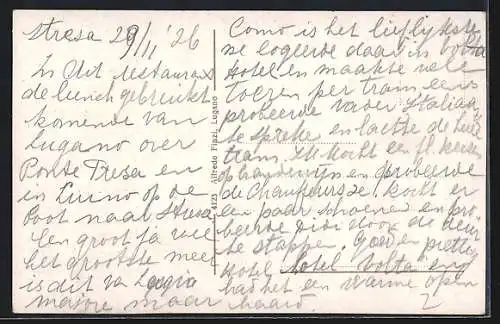 Stresa 29/11 '26
In dit restaurant
de lunch gebruikt
komende van
Lugano over
Ponte Tresa en
in Luino op de
boot naar Stresa
Een groot ja wel
het grootste meer
is dit va Lagio
majore maar
Como is het lieflijkste
we logeerde daar in Volta
Hotel en maakte vele
Toeren per tram, eens
probeerde vader Italiaans
te spreke en lachte de heele
tram. Hij kocht een fl. kersen
brandewijn en probeerde
de Chauffeursde. kocht er
een paar schoenen en pro-
beerde door de deur
te stappen. goed en prettig
Hotel hotel Volta eng
had het een warme open
haard.
4123 Alfredo Finzi, Lugano